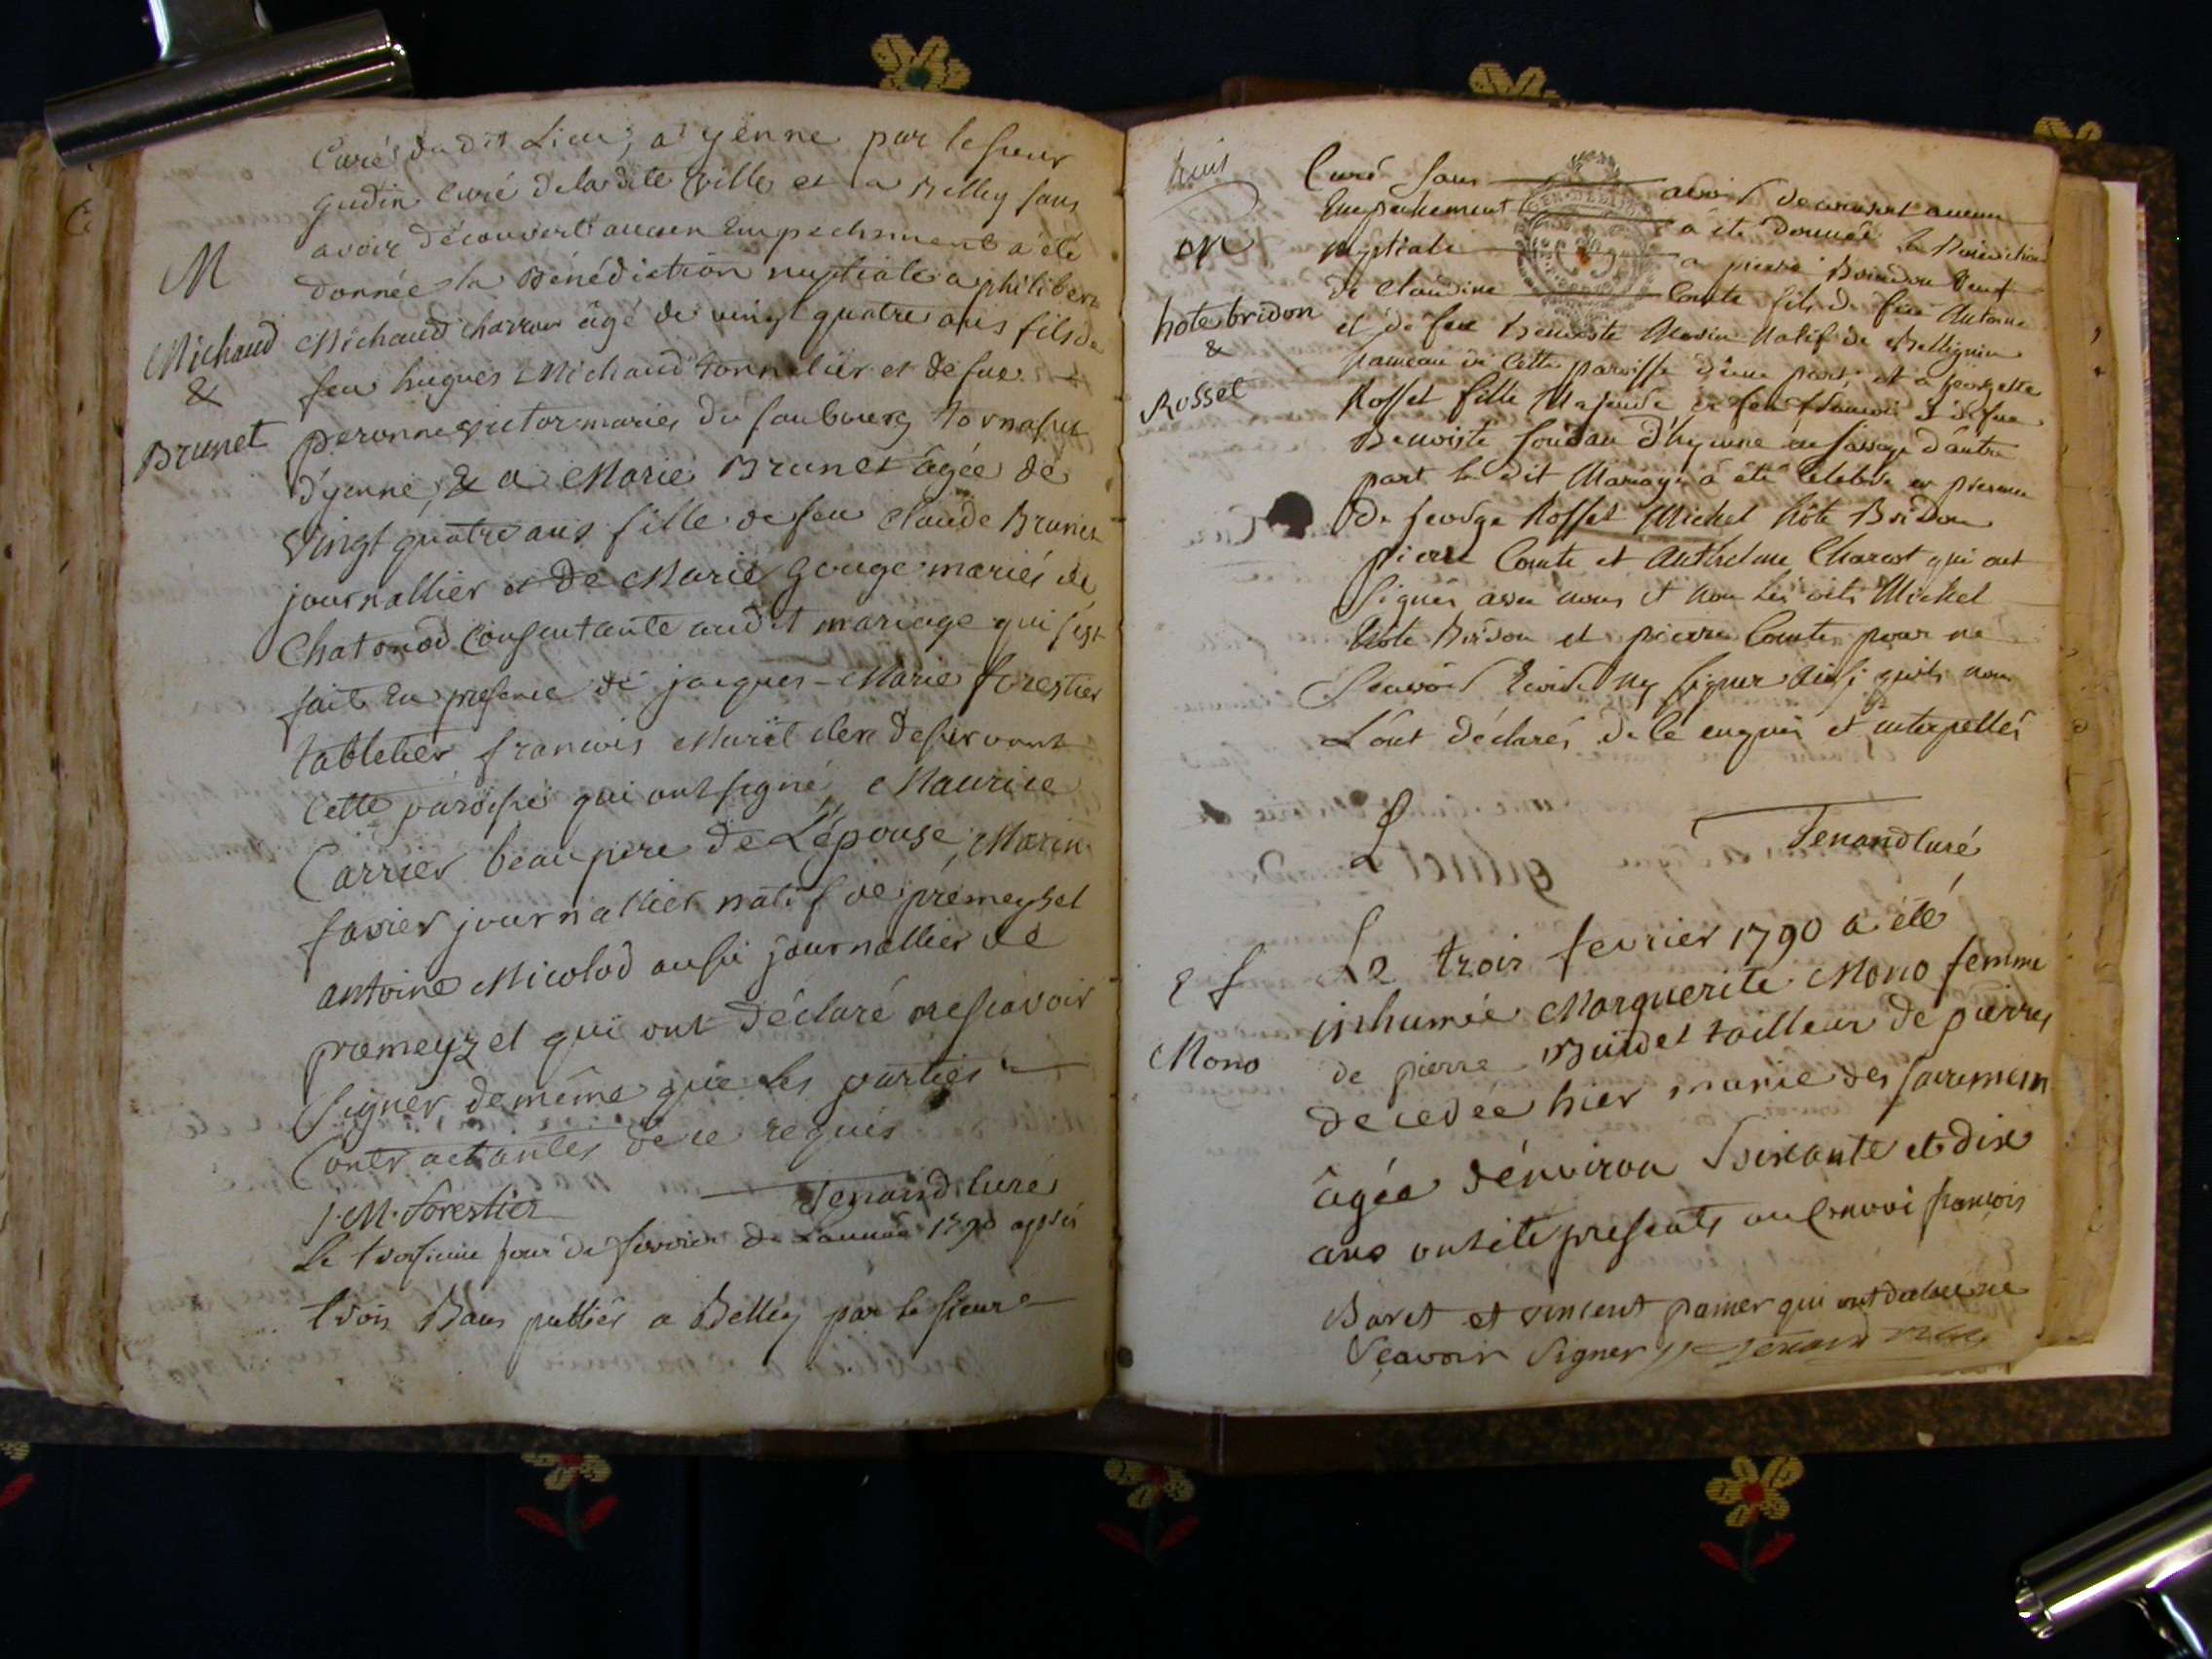 Curé du dit Lieu, a yenne par le sieur
gudin Curé de la dite ville et a Belley sans
avoir découvert aucun Empechement a été
M
donnée la Bénédiction nuptiale a philibert
Michaud
Michaud charron âgé de vingt quatre ans fils de
&
feu hugues Michaud tonnelier et de fue
Brunet
peronne victor mariés du faubourg
d'yenne, & a Marie Brunet âgée de
vingt quatre ans fille de feu Claude Brunet
journallier et de Marie Gouge mariés de
Chatonod Consentante audit mariage qui s'est
fait en presence de jacques-Marie forestier
tabletier francois Muret clerc desservant
Cette paroisse qui ont signé, Maurice
Carrier beau pere de L'épouse, Marin
favier journallier natif de prémeyzel
antoine Micolod aussi journallier de
premeyzel qui ont déclaré ne scavoir
signer de même que les parties
Contractantes de ce requis
J. M. forestier Jenand Curé
Le troisieme jour de fevrier de Lannée 1790 après
trois Bans publiés a Belley par le sieur
huis
Curé sans avoir decouvert aucun
Empechement a été Donnée la Bénédiction
M
nuptiale a pierre Bridon veuf
de Claudine Comte fils de feu Antoine
hote bridon
&
Rosset
et de feue Benoiste Marin Natif de
hameau de Cette paroisse d'une part, et a Georgette
Rosset fille Majeure de feu francois et de fue
Benoiste d'hyenne en d'autre
part le dit Mariage a été Celebré en presence
de George Rosset Michel hôte Bridon
pierre Comte et Anthelme Charcot qui ont
signés avec nous et non les dits Michel
hôte Bridon et pierre Comte pour ne
sçavoir Ecrire ny signer ainsi quils nous
L'ont déclarés de ce enquis et interpellés
Jenand Curé
Le trois fevrier 1790 a été
& f
inhumée Marguerite Mono femme
Mono
de pierre tailleur de pierres
decedée hier munie des sacremens
âgée d'environ soixante et dix
ans ont été presents au Convoi françois
Boret et vincent qui ont declaré ne
sçavoir signer Jenand Curé